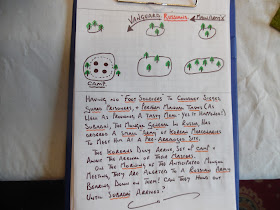 VANGUARD RUSSIANS MAIN ARMY
CAMP
HAVING HAD FOOT SOLDIERS TO CONQUER SISTER
GUARD PRISONERS + PERFORM MANUAL TASKS (AS
WELL AS PROVIDING A TASTY MEAL - YES IT HAPPENED!)
SUBADAI, THE MONGOL GENERAL IN RUSSIA HAS
ORDERED A SMALL ARMY OF KOREAN MERCENARIES
TO MEET HIM AT A PRE-ARRANGED SITE.
THE KOREANS DULY ARRIVE, SET UP CAMP +
AWAIT THE ARRIVAL OF THEIR MASTERS.
ON THE MORNING OF THE ANTICIPATED MONGOL
MEETING THEY ARE ALERTED TO A RUSSIAN ARMY
BEARING DOWN ON THEM! CAN THEY HOLD OUT
UNTIL SUBADAI ARRIVES?